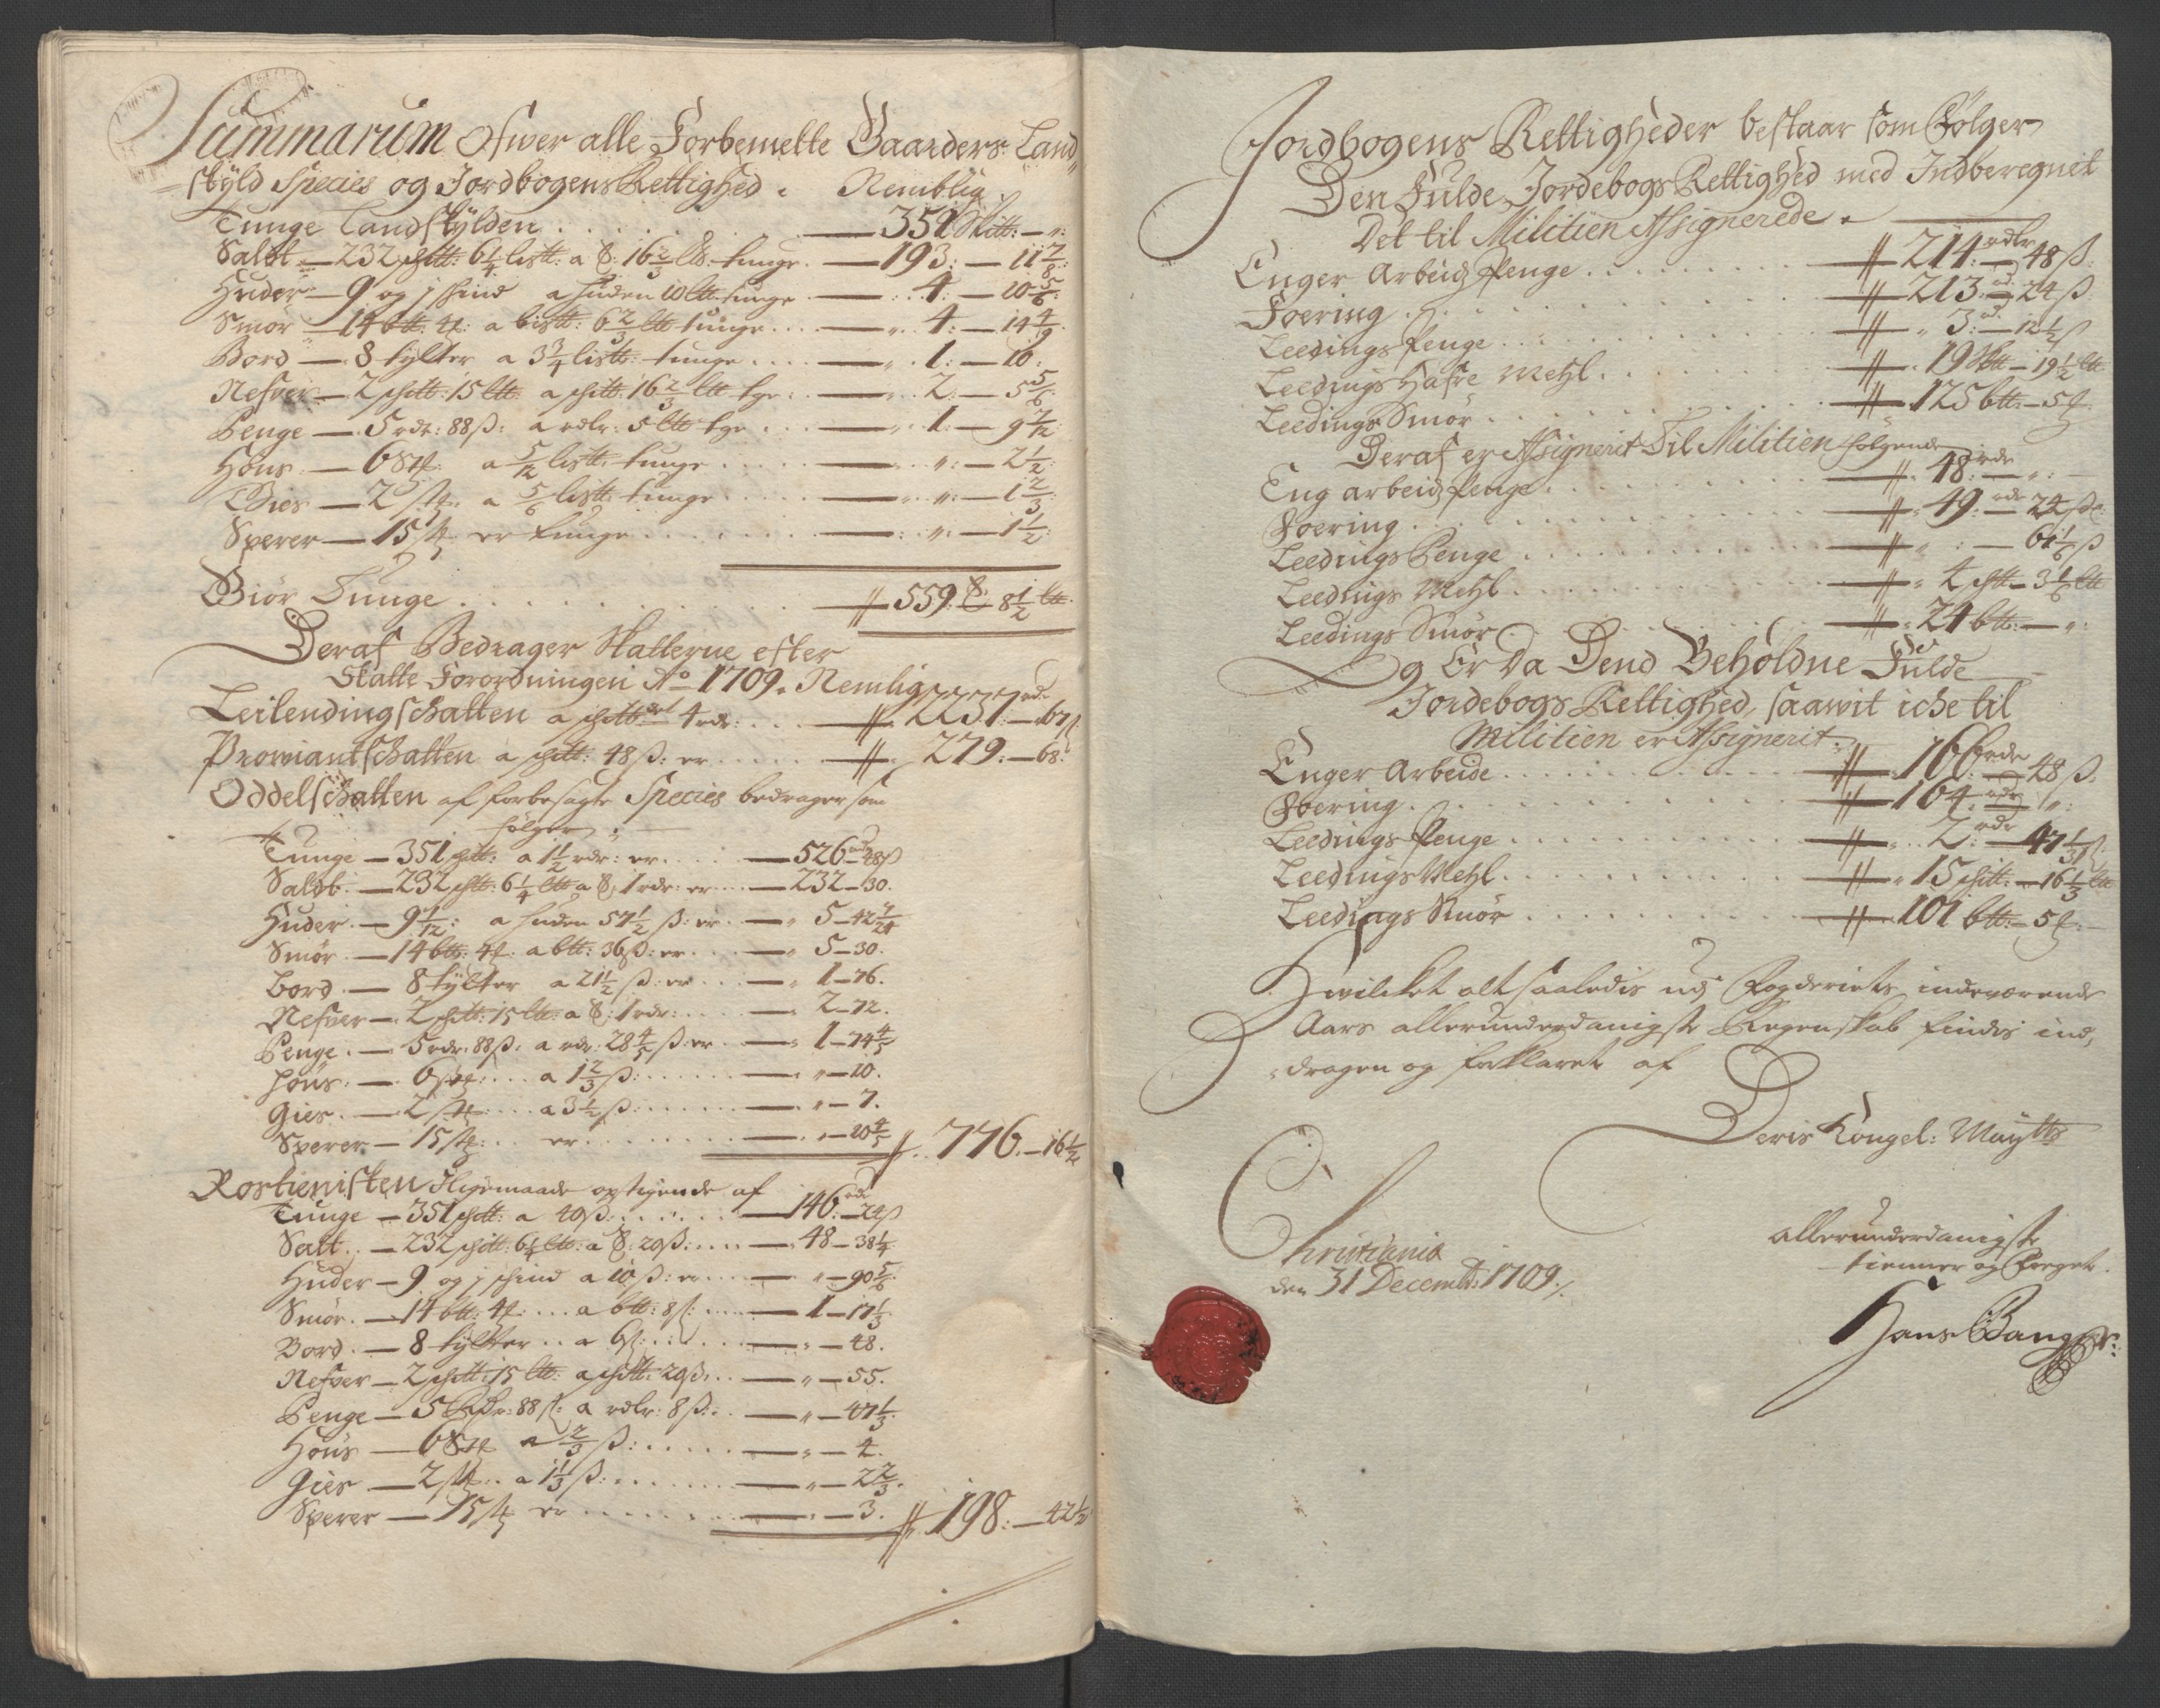 Summarum Ofwer alle Forbemelte Gaarders Land„
skyld Species og Jordbogens Rettighed. Nemblig
Tunge Landskylden . . . — 351 Skitt: — „:
Saldt — 232 schtt: 6 1/4 listt: a S: 16 2/3 lb. tunge — 193: — 11 7/8:
Huder — 9 og j skind a huden 10 ltt tunge — : 4: — 10 5/6:
Smør — 14 btt: 4 s: a bistt: 6 2/3 ltt tunge . . . — „ 4: — 14 4/9.
Bord — 8 tylter a 3 3/4 listt: tunge . . . — „ 1: — 10.
Nefver — 2 schtt: 15 ltt: a schtt. 16 2/3 ltt tge: — „ 2: — 5 5/6.
Penge — 5 rdr: 88 ß: a rdlr: 5 ltt tge . . . — „ 1: — 9 7/12:
Høns — 6 Stk: a 5/12 listt: tunge . . . — „: — 2 1/2:
Gies — 2 stk. a 5/6 listt: tunge . . . — „: — 1 2/3:
Sperer — 15 stk er tunge . . . — „: — 1 1/2:
Giør Tunge . . . — // 559. S: 8 1/2 ltt.
Deraf Bedrager Skatterne efter
Skatte Forordningen Ao 1709. Nemlig
Leilendingschatten a schtt 4 rdr: . . . — // 2237 rdr — 67 ß
Prowiantschatten a schtt: 48 ß: er . . . — // 279: — 68:
Oddelschatten af forbesagte Species bedrager som
følger:
Tunge — 351 schtt: a 1 1/2 rdr: er . . . — 526 rd — 48 ß
Saldt: — 232 schtt: 6 1/4 ltt a S: 1 rdr: er — 232 — 30.
Huder. — 9 1/12: a huden 57 1/2 ß: er — „ 5 — 42 7/24
Smør. — 14 btt: 4 s: a btt: 36 ß: er . . . — „ 5 — 30.
Bord. — 8 tylter a 21 1/2 ß: er . . . — „ 1 — 76.
Nefver — 2 schtt: 15 ltt: a S: 1 rdr: . . . — „ 2 — 72.
Penge. — 5 rdr: 88 ß: a rdr: 28 4/5 ß: er — „ 1 — 74 4/5
Høns: — 6 stk: . . . a 1 2/3 ß: . . . — „ — 10.
Gies. — 2 stk: . . . a 3 1/2 ß: . . . — „ — 7.
Sperer — 15 stk: . . . er . . . — „ — 20 4/5 // 776. — 16 1/2
Rostienisten Ligemaade opstigende af
Tunge — 351 schtt: a 40 ß: . . . — 146 rdr — 24 ß
Salt: — 232 schtt: 6 1/4 ltt: a S: 20 ß: . . . — 48 — 38 1/4
Huder — 9 og j schind a 10 ß: er . . . — „ — 90 5/6
Smør. — 14 btt: 4 s: . . . a btt: 8 s: . . . — 1 — 17 1/3
Bord. — 8 tylter . . a 6 s: . . . — : — 48.
Nefver — 2 schtt: 15 ltt: a schtt: 20 ß: . . — „ — 55.
Penge — 5 Rdr: 88 s: a rdlr: 8 ß: . . — „ — 47 1/3:
Høns — 6 Stk a 2/3 ß: . . . — „ — 4.
Gies — 2 stk . . a 1 1/3 ß: . . . — „ — 2 2/3.
Sperer — 15 stk er . . . — „ — 3. // 198: — 42 1/2
Jordbogens Rettigheder bestaar som Følger
Den Fulde Jordebogs Rettighed med Indberegnit
Det til Militien Assignerede.
Enger Arbeids Penge . . . — // 214: rdlr — 48 ß:
Foering . . . — // 213: rd — 24 ß
Leedings Penge . . . — // „ 3: rd — 12 1/2 ß
Leedings Hafre Mehl . . . — // 19 Schtt — 19 1/2 ltt
Leedings Smør . . . — // 125 btt: — 5 s.
Deraf er Assignerit Til Militien følgende
Eng arbeids Penge . . . — // 48: rdr — „:
Foering . . . — // „ 49: rdr 24 ß
Leedings Penge . . . — // „ : — 61 1/6 ß
Leedings Mehl . . . — // „ 4 schtt — 3 1/6 ltt
Leedings Smør . . . — // „ 24 btt: — „:
Og Er Da Dend Beholdne Fulde
Jordebogs Rettighed, saawit iche til
Militien er Assignerit.
Enger Arbeide . . . — // „ 166 rdr 48 ß.
Foering . . . — // 164 rdr „:
Leedings Penge . . . — // „ 2: rdr — 47 1/3 ß
Leedings Mehl . . . — // „ 15 schtt: — 16 1/3 ltt
Leedings Smør . . . — // 101 btt: — 5 s: —
Hwilcket alt saaledis udj Fogderiets indeværende
Aars allerunderdanigste Regenskab findis ind„
dragen og forklaret af
Deris Kongel: Mayts
allerunderdanigste
tienner og Foeget.
Christiania
den 31 Decemb: 1709 /.
Hans Bang